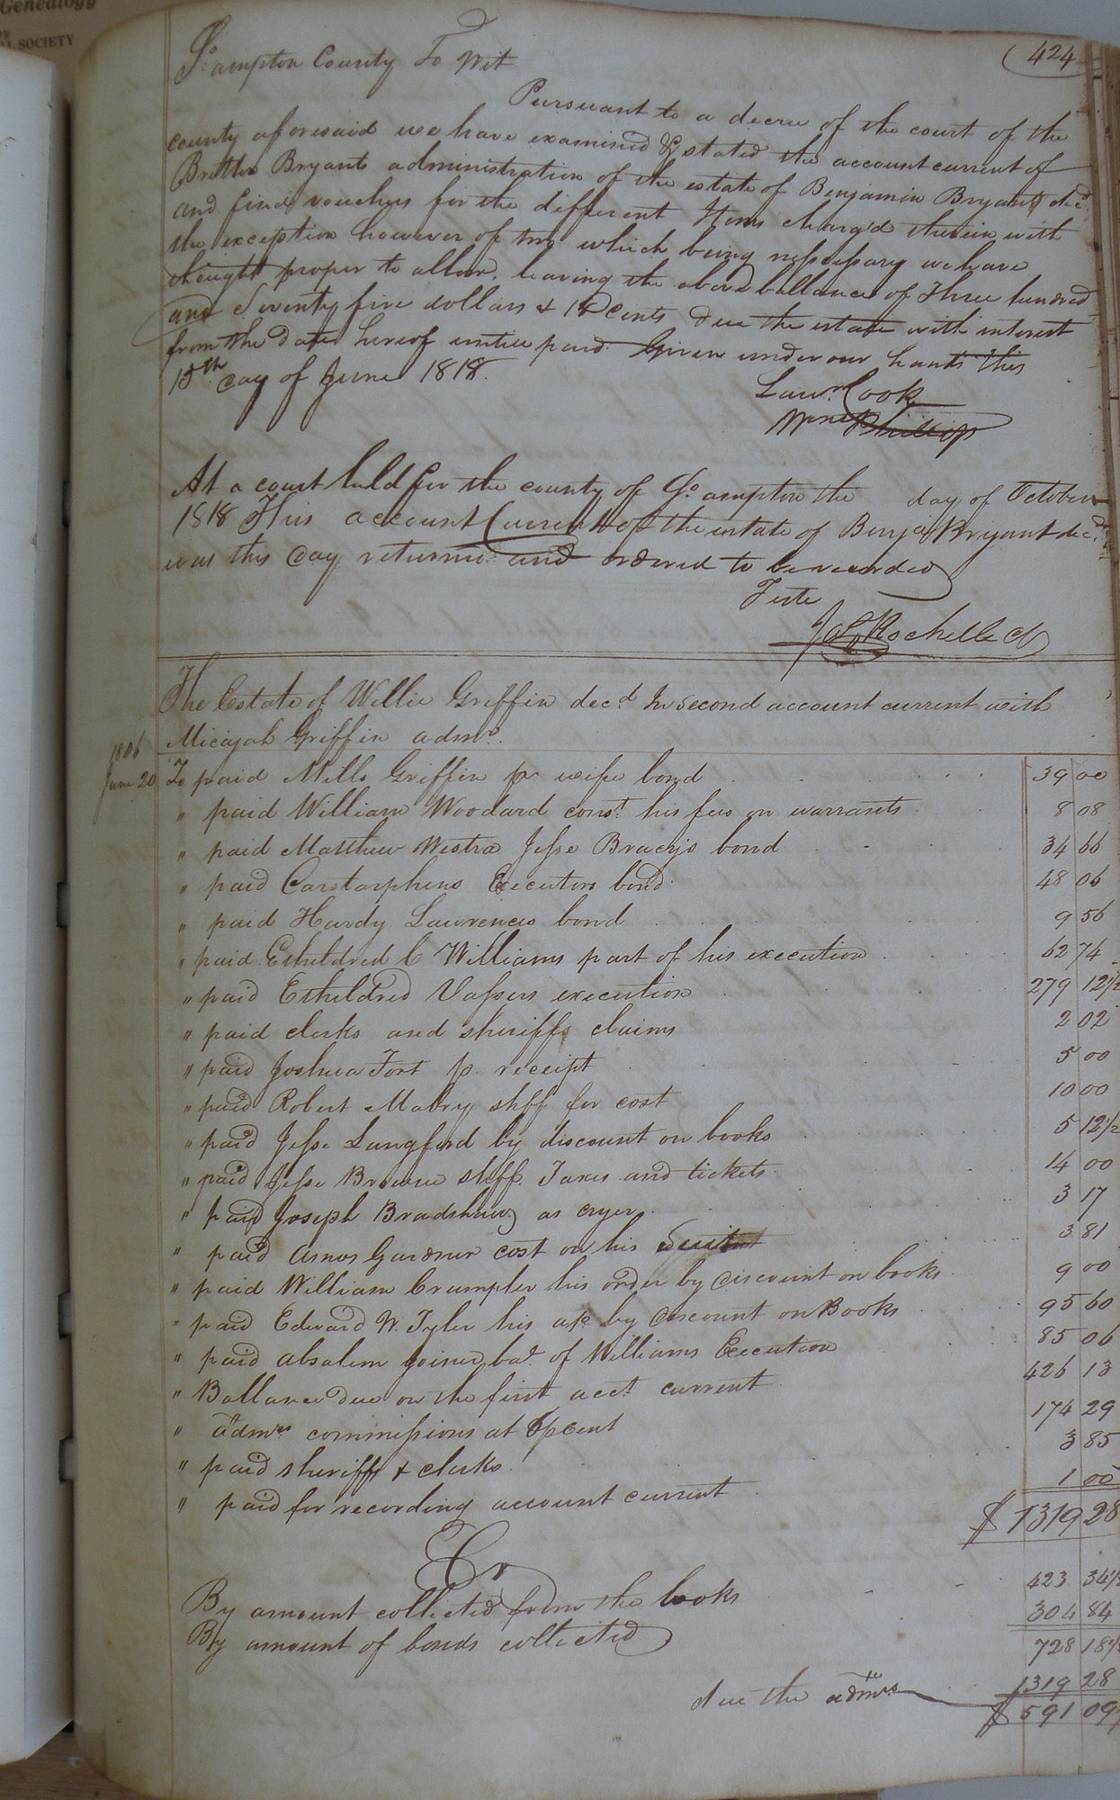 Genealogy
SOCIETY
424
So. ampton County To Wit
Pursuant to a decree of the court of the
county aforesaid we have examined & stated the account current of
Britton Bryants administration of the estate of Benjamin Bryant decd.
and find vouchers for the different Items charg'd therein with
the exception however of two which being nessessary we have
thought proper to allow. leaving the above ballance of Three hundred
and Seventy five dollars & Cents due the estate with interest
from the date hereof untill paid. Given under our hands this
15th day of June 1818.
Lawr. Cook
Phillips
At a court held for the county of So. ampton the day of October
1818 This account Current of the estate of Benja. Bryant decd.
was this day returned and ordered to be recorded
Teste
Rochelle
The Estate of Willie Griffin decd. In second account current with
Micajah Griffin admr.
1806
June 20 To paid Mills Griffin pr wife bond 39 00
" paid William Woodard const. his fees on warrants 8 08
" paid Matthew Westra Jesse Bracys bond 34 66
" paid Carstarphens Executors bond 48 06
" paid Hardy Lawrences bond 9 56
" paid Etheldred C Williams part of his execution 62 74
" paid Etheldred Vassers execution 279 12½
" paid clerks and sheriffs claims 2 02
" paid Joshua Fort p. receipt 5 00
" paid Robert Mabry shff for cost 10 00
" paid Jesse Langford by discount on books 5 12½
" paid Jesse Browne shff. Taxes and tickets 14 00
" paid Joseph Bradshaw as cryer 3 17
" paid Amos Gardner cost on his 3 81
" paid William Crumpler his order by discount on books 9 00
" paid Edward W. Tyler his a/c by discount on Books 95 60
" paid Absalem Joiner bal. of Williams Execution 85 06
" Ballance due on the first acct. current 426 13
" admrs commissions at pcent 174 29
" paid sheriff & clerks 3 85
" paid for recording account current 1 00
$ 1319 28
Cr
By amount collected from the books 423 34½
By amount of bonds collected 304 84
728 18½
1319 28
due the admrs $ 591 09